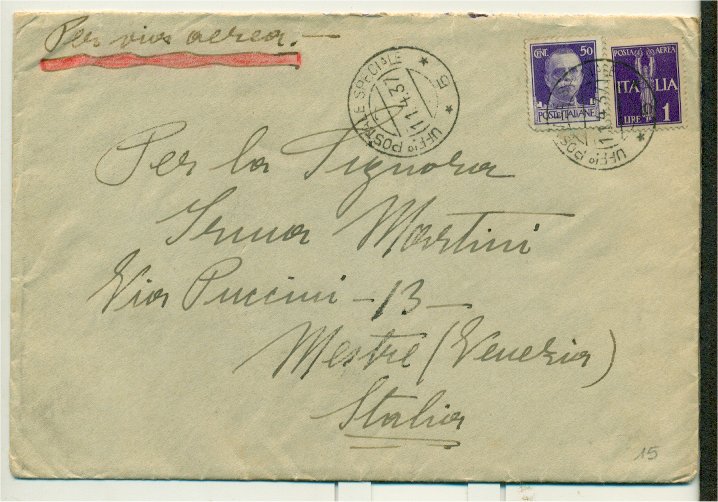 Per via aerea. -
UFF° POSTALE SPECIALE * 5 *
11.4.37
CENT. 50
POSTE ITALIANE
POSTA AEREA
ITALIA
LIRE 1
UFF° POSTALE
11.4.37
Per la Signora
Irma Martini
Via Puccini - 13 -
Mestre (Venezia)
Italia
15